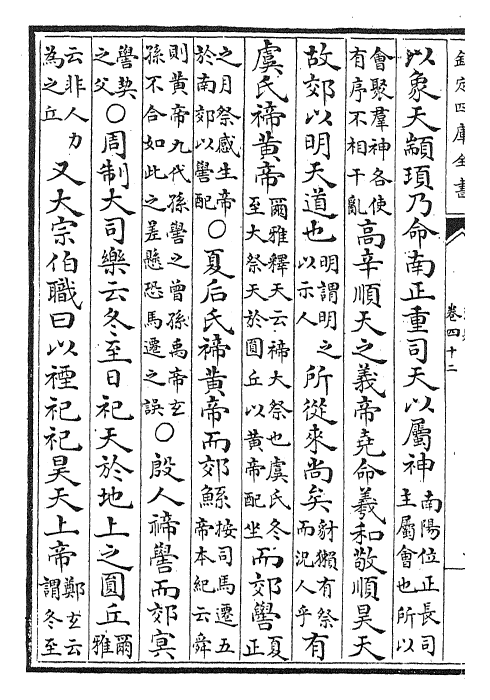 欽定四庫全書
卷四十二
以象天顓頊乃命南正重司天以屬神南陽位正長司主屬會也所以
會聚羣神各使有序不相干亂高辛順天之義帝堯命羲和敬順昊天
故郊以明天道也明謂明之以示人所從來尚矣豺獺有祭而況人乎有
虞氏禘黄帝爾雅釋天云禘大祭也虞氏冬至大祭天於圓丘以黄帝配坐而郊嚳夏正
之月祭感生帝於南郊以嚳配○夏后氏禘黄帝而郊鯀按司馬遷五帝本紀云舜
則黄帝九代孫嚳之曾孫禹帝玄孫不合如此之差懸恐馬遷之誤○殷人禘嚳而郊冥
嚳契之父○周制大司樂云冬至日祀天於地上之圓丘爾雅
云非人力為之丘又大宗伯職曰以禋祀祀昊天上帝鄭玄云謂冬至